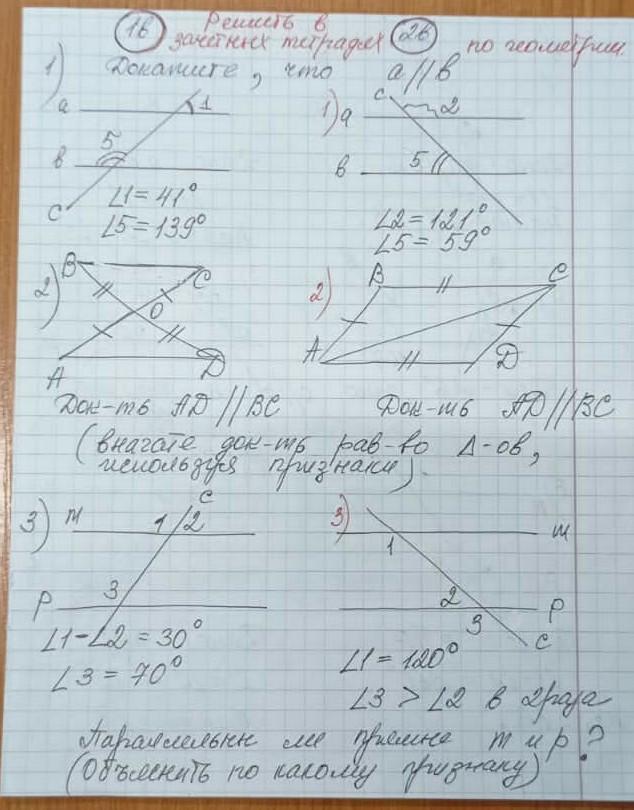 1в Решить в зачётных тетрадях 2в по геометрии.
1) Докажите, что a // в
a 1
в 5
c
∠1 = 41°
∠5 = 139°
1) c
a 2
в 5
∠2 = 121°
∠5 = 59°
2) B C
O
A D
Док-ть AD // BC
2) B C
A D
Док-ть AD // BC
(вначале док-ть рав-во Δ-ов,
используя признаки).
3) m 1 2 c
p 3
∠1 - ∠2 = 30°
∠3 = 70°
3) 1 m
2 p
3 c
∠1 = 120°
∠3 > ∠2 в 2 раза
Параллельны ли прямые m и p?
(Объяснить по какому признаку)